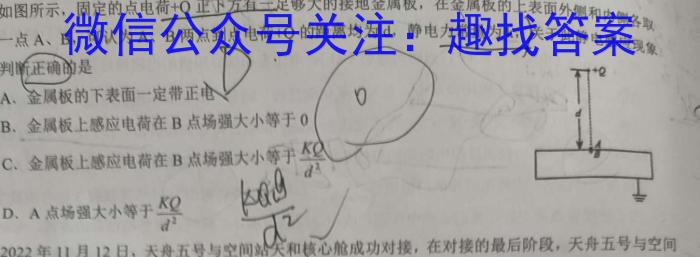 如图所示，固定的点电荷+Q正下方有一足够大的接地金属板，在金属板的上表面外侧和内侧各取
一点A、B，认为A、B两点到点电荷+Q的距离均为d，静电力
微信公众号关注：趣找答案
判断正确的是
A．金属板的下表面一定带正电
B．金属板上感应电荷在B点场强大小等于0
C．金属板上感应电荷在B点场强大小等于KQ/d²
D．A点场强大小等于KQ/d²
+Q
d
A
B
0
d²
2022年11月12日，天舟五号与空间站天和核心舱成功对接，在对接的最后阶段，天舟五号与空间